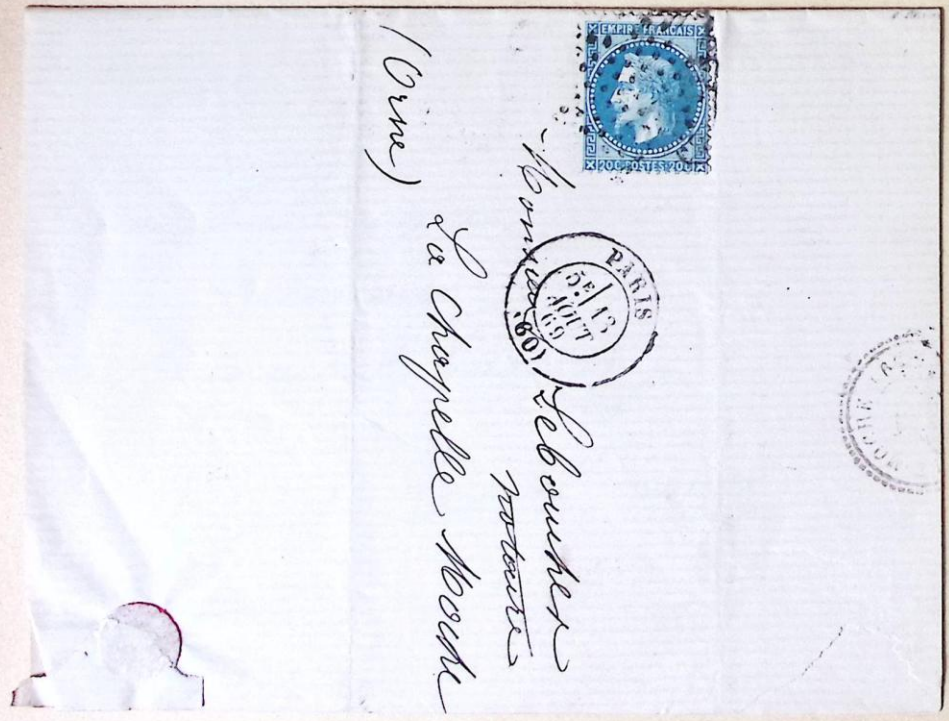 EMPIRE FRANÇAIS
20C POSTES 20C
PARIS
5E 13
AOUT
69
(60)
Monsieur Lebouher
notaire
La Chapelle Moche
(Orne)
MOCHE (